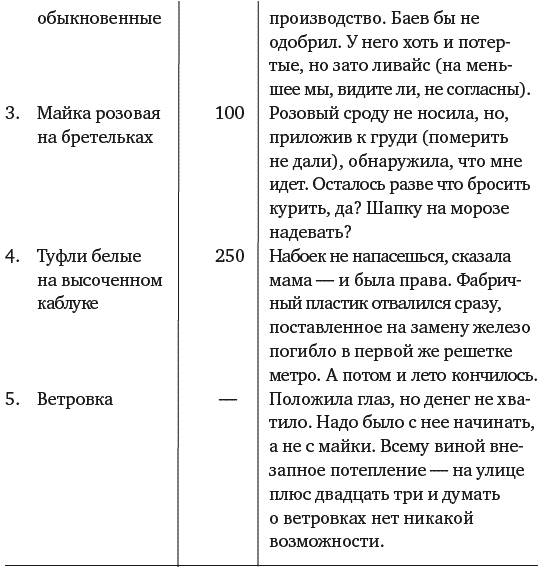 обыкновенные производство. Баев бы не
одобрил. У него хоть и потер-
тые, но зато ливайс (на мень-
шее мы, видите ли, не согласны).
3. Майка розовая 100 Розовый сроду не носила, но,
на бретельках приложив к груди (померить
не дали), обнаружила, что мне
идет. Осталось разве что бросить
курить, да? Шапку на морозе
надевать?
4. Туфли белые 250 Набоек не напасешься, сказала
на высоченном мама — и была права. Фабрич-
каблуке ный пластик отвалился сразу,
поставленное на замену железо
погибло в первой же решетке
метро. А потом и лето кончилось.
5. Ветровка — Положила глаз, но денег не хва-
тило. Надо было с нее начинать,
а не с майки. Всему виной вне-
запное потепление — на улице
плюс двадцать три и думать
о ветровках нет никакой
возможности.